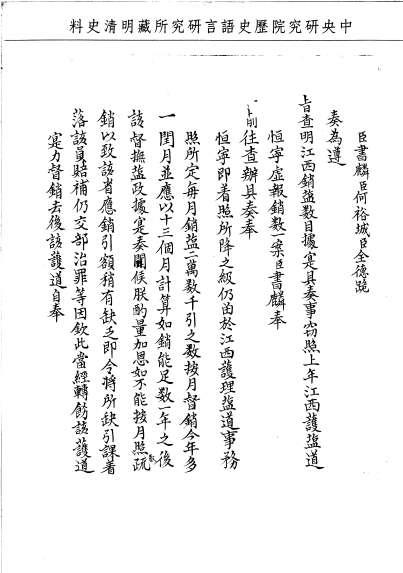 中央研究院歷史語言研究所藏明清史料
臣書麟臣何裕城臣全德跪
奏為遵
旨查明江西銷鹽數目據寔具奏事竊照上年江西護鹽道
恒寧虛報銷數一案臣書麟奉
前往查辦具奏奉
恒寧即着照所降之級仍留於江西護理鹽道事務
照所定每月銷鹽二萬數千引之數按月督銷今年多
一閏月並應以十三個月計算如銷能足數一年之後
該督撫鹽政據寔奏聞候朕酌量加恩如不能按月照數疏
銷以致該省應銷引額稍有缺乏即令將所缺引課着
落該員賠補仍交部治罪等因欽此當經轉飭該護道
寔力督銷去後該護道自奉